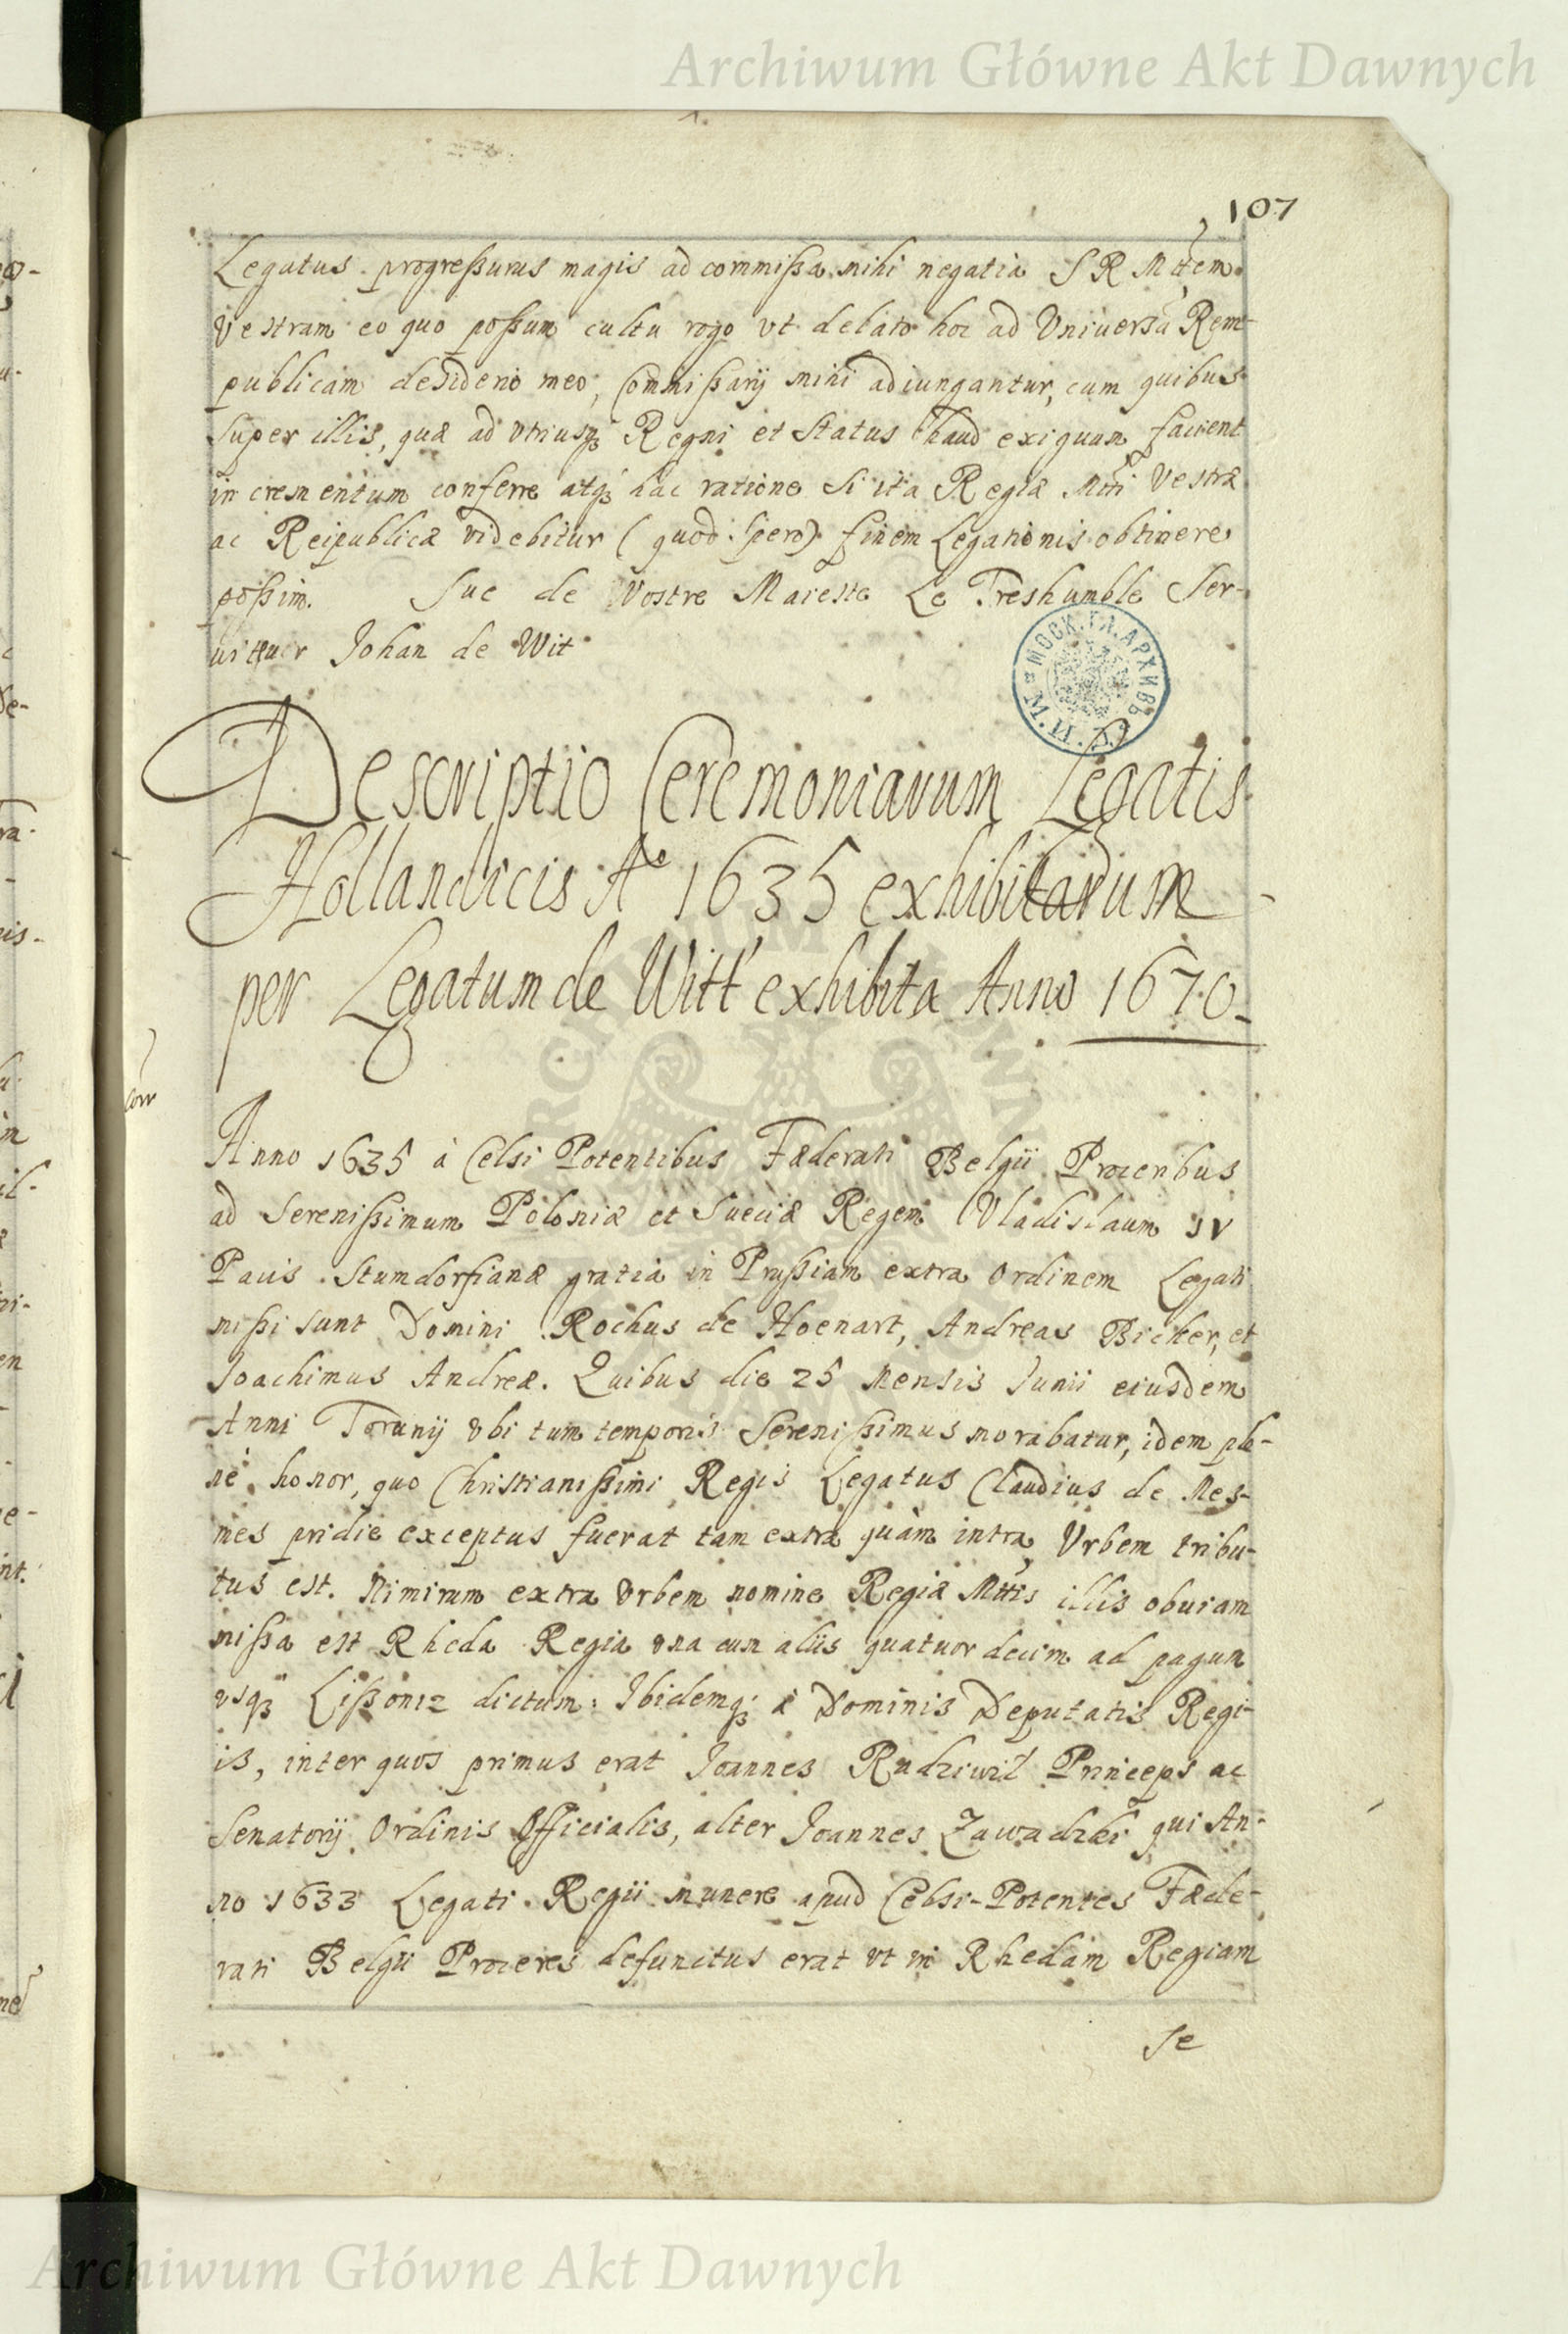 Archiwum Główne Akt Dawnych
107
Legatus progreßurus magis ad commißa mihi negatia S R Mttem
Vestram eo quo poßum cultu rogo vt delato hoc ad Vniversã Rem-
publicam desiderio meo, Commißarij mihi adiungantur, cum quibus
super illis, quæ ad vtriusqꝫ Regni et Status haud exiguum facient
in crementum conferre atqꝫ hac ratione si ita Regiæ Mtti Vestræ
ac Reipublicæ videbitur (quod spero) finem Legationis obtinere
poßim. Sue de Vostre Maieste Le Treshumble Ser-
uiteur Johan de Wit
МОСК. ГЛ. АРХИВЪ М. И. Д.
Descriptio Ceremoniarum Legatis
Hollandicis Aº 1635 exhibitarum
per Legatum de Witt exhibita Anno 1670
Anno 1635 à Celsi Potentibus Fæderati Belgii Proceribus
ad Serenißimum Poloniæ et Sueciæ Regem Vladislaum IV
Pacis Stumdorfianæ gratia in Prußiam extra Ordinem Legati
mißi sunt Domini Rochus de Hoenart, Andreas Bicker, et
Joachimus Andreæ. Quibus die 25 Mensis Junii eiusdem
Anni Torunij vbi tum temporis Serenißimus morabatur, idem ple-
nè honor, quo Christianißimi Regis Legatus Claudius de Mes-
mes pridie exceptus fuerat tam extra quàm intra Vrbem tribu-
tus est. Nimirum extra Vrbem nomine Regiæ Mttis illis obuiam
mißa est Rheda Regia vna cum aliis quatuor decim ad pagum
vsqꝫ Lißonız dictum: Ibidemqꝫ à Dominis Deputatis Regi-
is, inter quos primus erat Joannes Radziwil Princeps ac
Senatorij Ordinis Officialis, alter Joannes Zawadzki qui An-
no 1633 Legati Regii munere apud Celsi-Potentes Fæde-
rati Belgii Proceres defunctus erat vt in Rhedam Regiam
se
Archiwum Główne Akt Dawnych